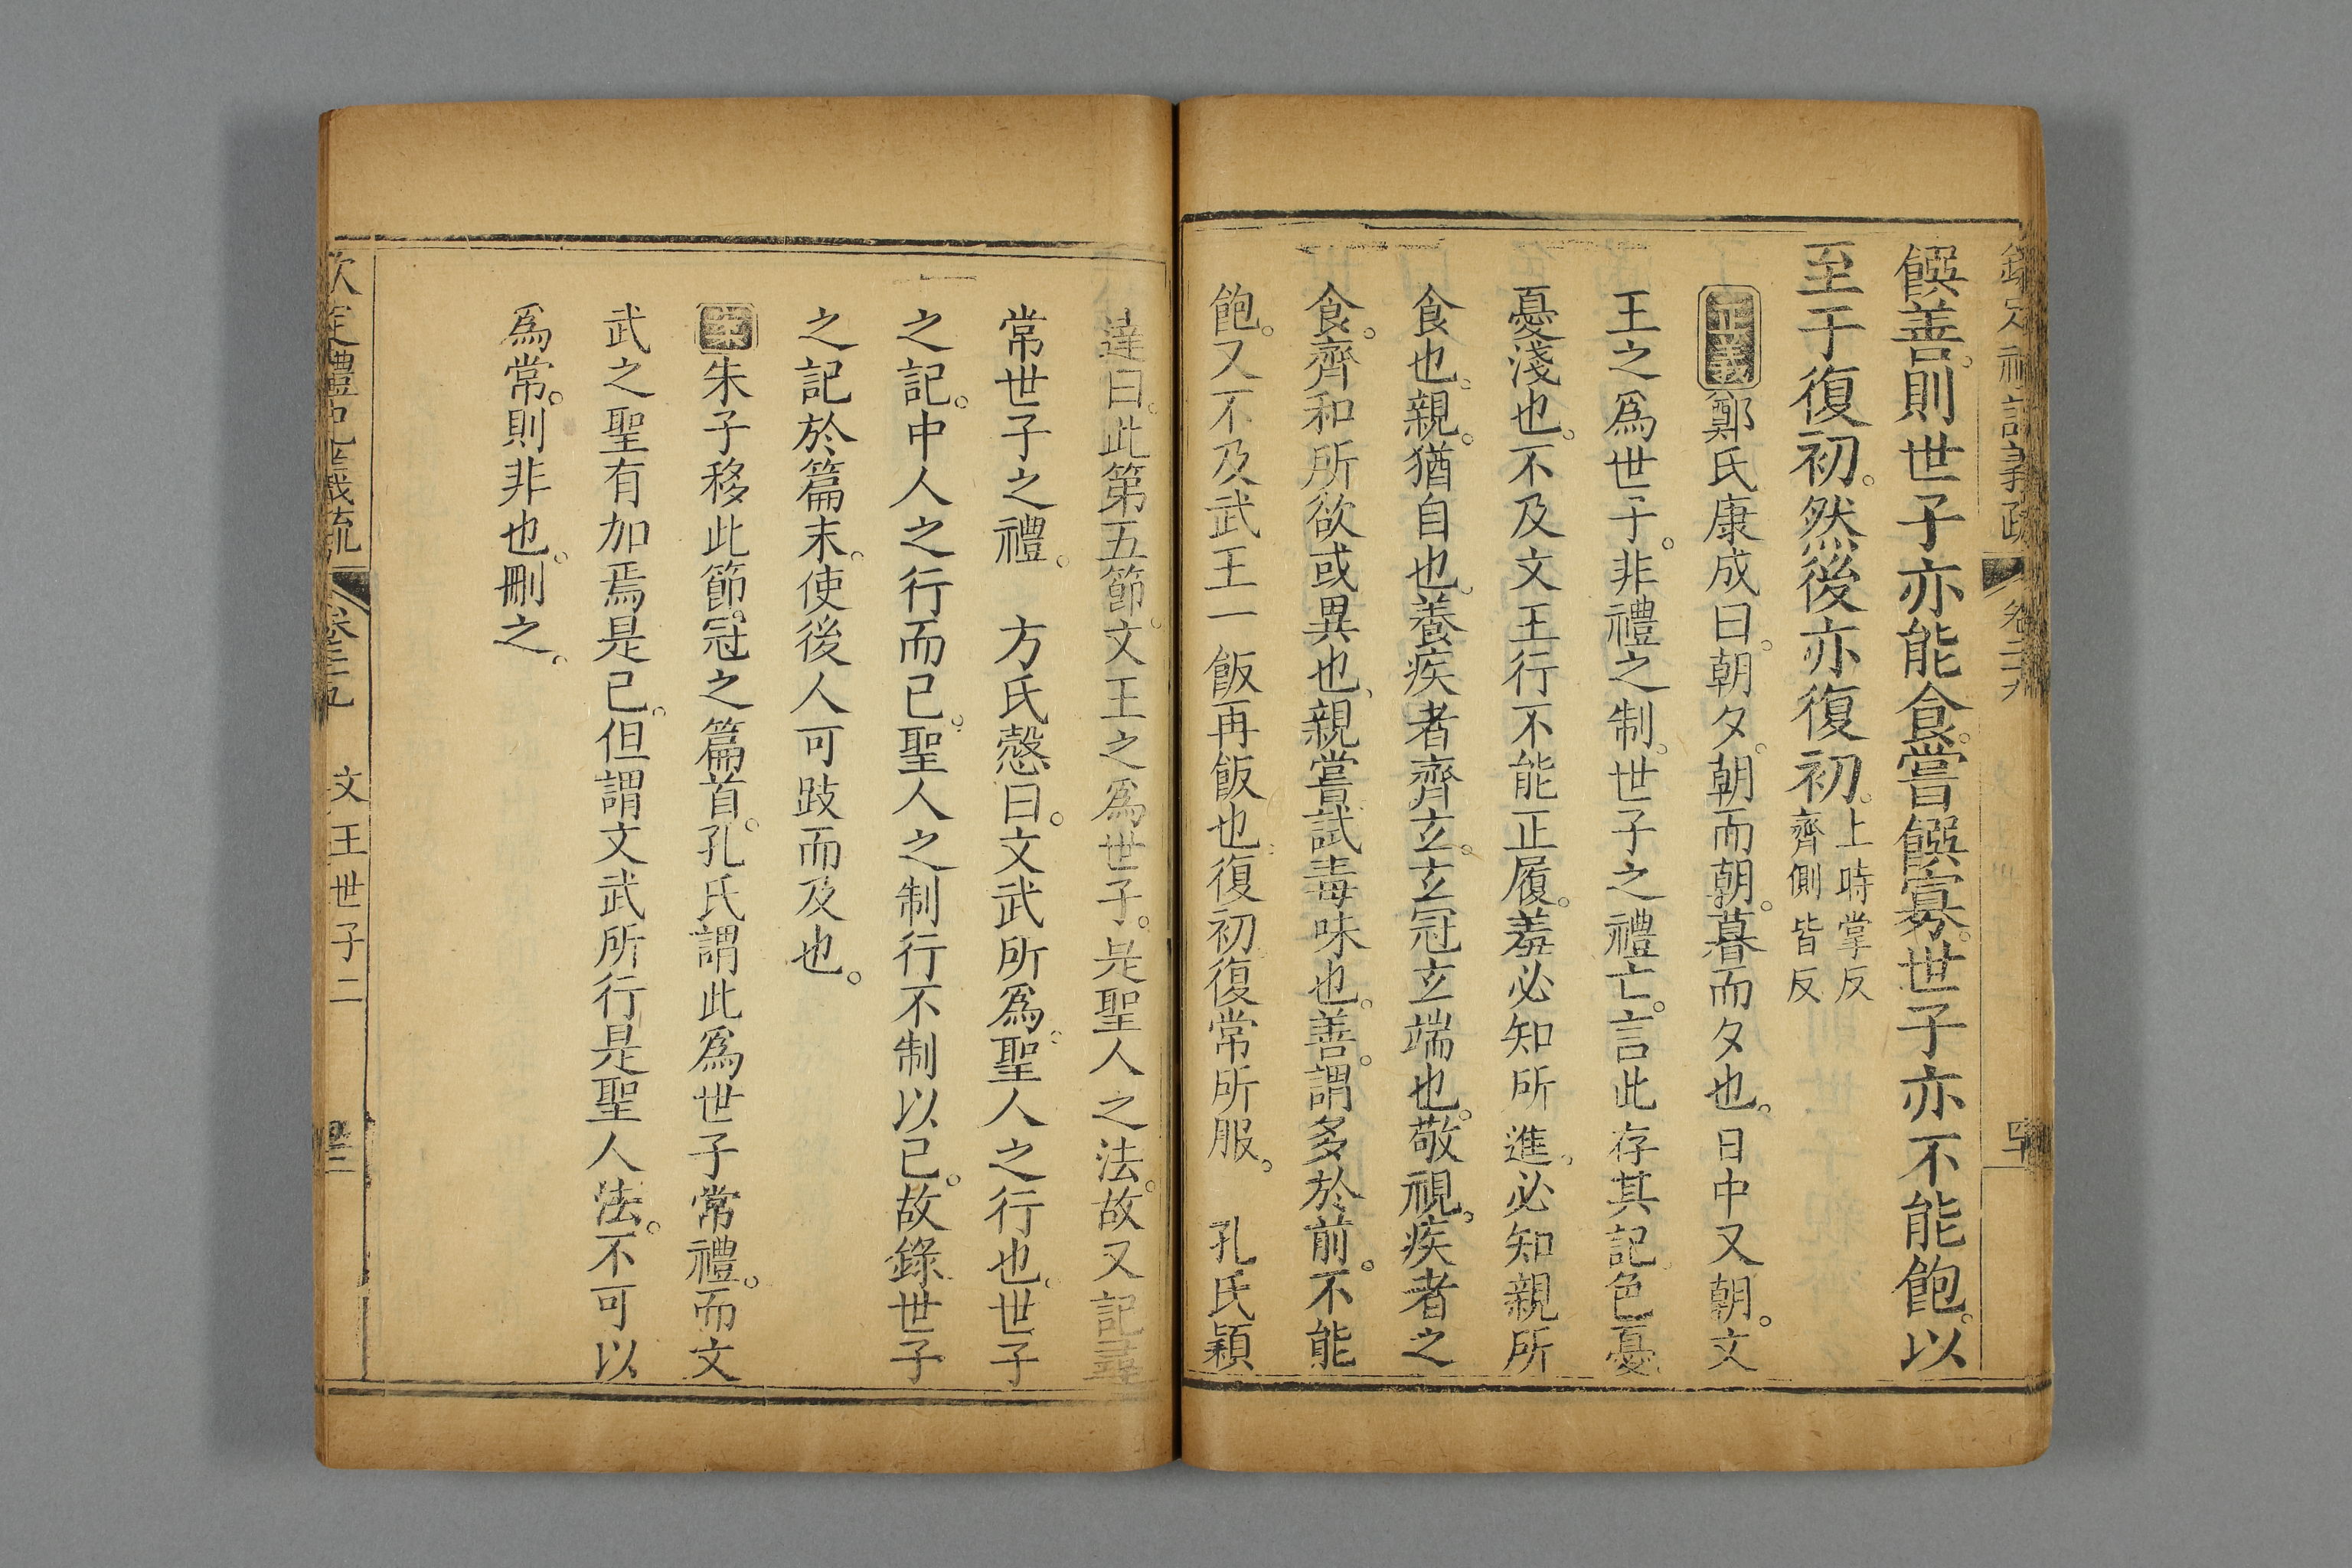 欽定禮記義疏 卷二十九
饌善。則世子亦能食。嘗饌寡。世子亦不能飽。以
至于復初。然後亦復初。上時掌反
齊側皆反
正義鄭氏康成曰。朝夕。朝而朝。暮而夕也。日中又朝。文
王之爲世子。非禮之制。世子之禮亡。言此存其記。色憂
憂淺也。不及文王行不能正履。羞必知所進。必知親所
食也。親。猶自也。養疾者齊玄。玄冠玄端也。敬視。疾者之
食。齊和所欲或異也。親嘗試毒味也。善。謂多於前。不能
飽。又不及武王一飯再飯也。復初。復常所服。　孔氏穎
達曰。此第五節。文王之爲世子。是聖人之法。故又記尋
常世子之禮。　方氏慤曰。文武所爲。聖人之行也。世子
之記。中人之行而已。聖人之制行不制以已。故錄世子
之記於篇末。使後人可跂而及也。
案朱子移此節。冠之篇首。孔氏謂此爲世子常禮。而文
武之聖有加焉是已。但謂文武所行是聖人法。不可以
爲常。則非也。刪之。
欽定禮記義疏 卷二十九 文王世子二